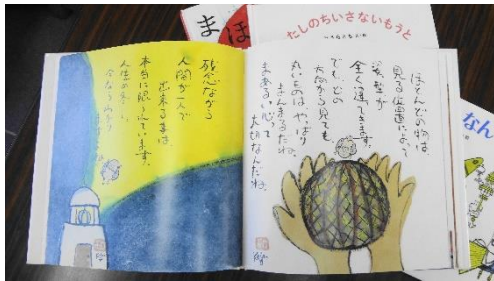 まほ
たしのちいさないもうと
ほとんどの物は、
見る位置によって
姿・型が
全く違てきます。
でも、どの
方向から見ても
丸いものはやっぱり
まんまるだね。
まあるい心って
大切なんだね。
残念ながら
人間が一人で
出来る事は、
本当に限られています。
人生の
なん